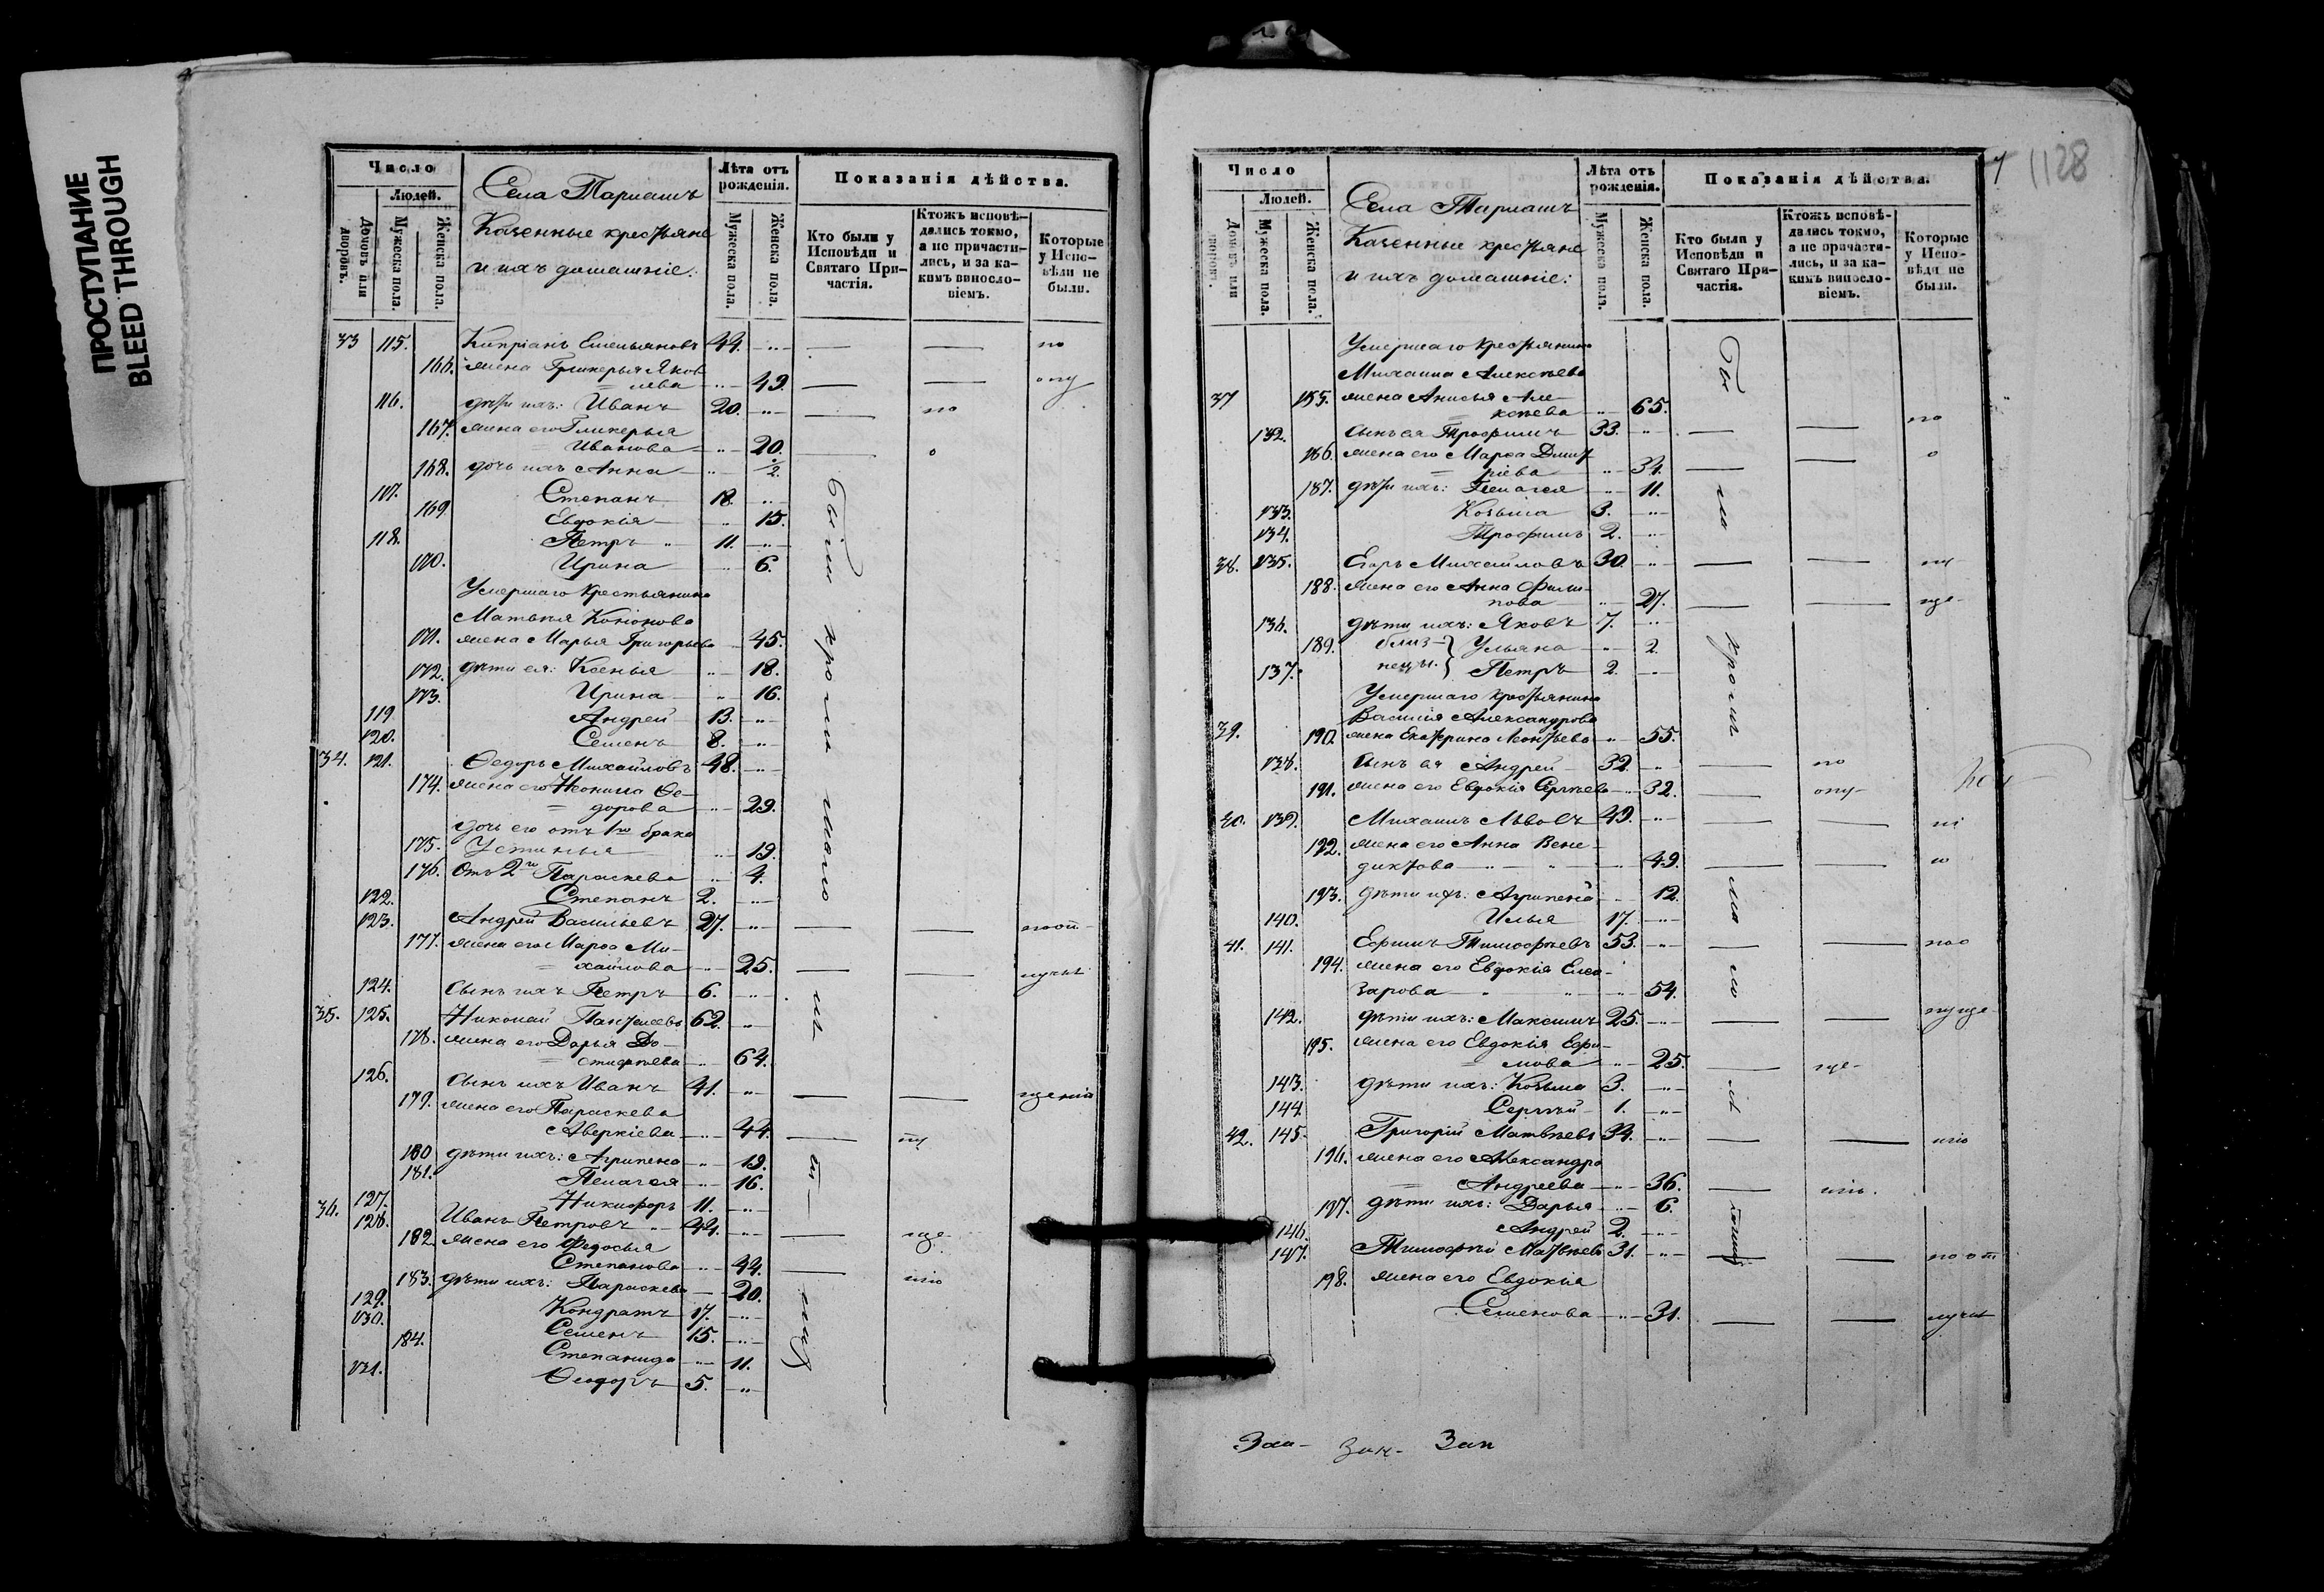 ПРОСТУПАНИЕ
BLEED THROUGH
Число
Людей.
Домовъ или дворовъ.
Мужеска пола.
Женска пола.
Села
Казенные крестьяне
и ихъ домашніе:
Лѣта отъ рожденія.
Мужеска пола.
Женска пола.
Показанія дѣйства.
Кто были у Исповѣди и Святаго Причастія.
Ктожъ исповѣдались токмо, а не причастились, и за какимъ винословіемъ.
Которые у Исповѣди не были.
33 115. Кипріанъ Емельяновъ 44.
166. жена Гликерья Яков
= лева 49.
116. дѣти ихъ: Иванъ 20.
167. жена его Гликерья
Иванова 20.
168. дочь ихъ Анна ½
117. Степанъ 18.
169 Евдокія 15.
118. Петръ 11.
170. Ирина 6.
Умершаго крестьянина
Матвѣя Кононова
171. жена Марья Григорьева 45.
172. дѣти ея: Ксенья 18.
173. Ирина 16.
119 Андрей 13.
120. Семенъ 8.
34. 121. Ѳедоръ Михайловъ 48.
174. жена его Неонила Ѳе-
= дорова 29.
дочь его отъ 1го брака
175. Устинья 19.
176. отъ 2го Параскева 4.
122. Степанъ 2.
123. Андрей Васильевъ 27.
177. жена его Марѳа Ми-
= хайлова 25.
124. сынъ ихъ Петръ 6.
35. 125. Николай Пантелеевъ 62.
178. жена его Дарья До-
= стифѣева 64.
126. сынъ ихъ Иванъ 41.
179. жена его Параскева
Аверкіева 44.
180 дѣти ихъ: Агрипена 19.
181. Пелагея 16.
127. Никифоръ 11.
36. 128. Иванъ Петровъ 44.
182. жена его Федосья
Степанова 44.
183. дѣти ихъ: Параскева 20.
129. Кондратъ 17.
130. Семенъ 15.
184. Степанида 11.
131. Ѳеодоръ 5.
1128
Число
Людей.
Домовъ или дворовъ.
Мужеска пола.
Женска пола.
Села
Казенные крестьяне
и ихъ домашніе:
Лѣта отъ рожденія.
Мужеска пола.
Женска пола.
Показанія дѣйства.
Кто были у Исповѣди и Святаго Причастія.
Ктожъ исповѣдались токмо, а не причастились, и за какимъ винословіемъ.
Которые у Исповѣди не были.
Умершаго крестьянина
Михаила Алексѣева
37 185. жена Анисья Але-
= ксѣева 65.
132. сынъ ея Трофимъ 33.
186. жена его Марѳа Дмит
= ріева 34.
187. дѣти ихъ: Пелагея 11.
133. Козьма 3.
134. Трофимъ 2.
38. 135. Егоръ Михайловъ 30.
188. жена его Анна Фили-
пова 27.
136. дѣти ихъ: Яковъ 7.
189. близ- Ульяна 2
137. нецы. Петръ 2.
Умершаго крестьянина
Василія Александрова
39. 190. жена Екатерина Леонтьева 55.
138. сынъ ея Андрей 32.
191. жена его Евдокія Сергѣева 32.
40. 139. Михаилъ Львовъ 49.
192. жена его Анна Вене-
диктова 49.
193. дѣти ихъ: Агрипена 12.
140. Илья 17.
41. 141. Ефимъ Тимофѣевъ 53.
194. жена его Евдокія Елеа-
зарова 54.
142. дѣти ихъ: Максимъ 25.
195. жена его Евдокія Ефи-
= мова 25.
143. дѣти ихъ: Козьма 3.
144. Сергѣй 1.
42. 145. Григорій Матвѣевъ 34.
196. жена его Александра
= Андреева 36.
197. дѣти ихъ: Дарья 6.
146. Андрей 2.
147. Тимофѣй Матвѣевъ 31.
198. жена его Евдокія
Семенова 31.